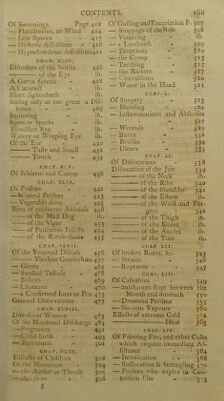 CONTENTS. xliii
Of Swoonings Page 412
— Flatulencies, or Wind 414
— Low Spirits ib.
— Hysteric Affections 418
— Hypochondriac Affections
CHAP. XLIV.
Disorders of the Senses 426
— of the Eye ib.
A Gutta Serena 428
A Cataract ib.
Short-sightedness ib.
Seeing only at too great a Distance 429
Squinting ib.
Spots or Specks ib.
Bloodshot Eye ib.
Watery or Weeping Eye
Of the Ear 432
— Taste and Smell
— Touch 434
CHAP. XLV.
Of Schirrus and Cancer 436
CHAP. XLVI.
Of Poisons
— Mineral Poisons 443
— Vegetable ditto
Bites of poisonous Animals
— of the Mad Dog ib.
— of the Viper 455
— of the Rattle-Snake ib.
— of poisonous Insects
CHAP. XLVII.
Of the Venereal Disease
— Virulent Gonorrhœa
— Gleets 465
— Swelled Testicle 468
— Buboes 469
— Chancres 470
— a Confirmed Lues or Pox 473
General Observations 477
CHAP. XLVIII.
Diseases of Women 483
Of the Menstrual Discharge 484
— Pregnancy
— Child-birth 493
— Barrenness 501
CHAP. XLIX.
Diseases of Children 502
Of the Meconium 504
— the Aphthæ or Thrush 505
— Acidities 506
5
Of Galling and Excoriation P. 507
— Stoppage of the Nose 508
— Vomiting ib.
— Looseness 509
— Eruptions
— the Croup 515
— Teething 515
— the Rickets 517
— Convulsions 520
— Water in the Head 522
CHAP. L.
Of Surgery 523
— Bleeding 524
— Inflammations and Abscesses 527
— Wounds 529
— Burns
— Bruises
— Ulcers 535
CHAP. LI.
Of Dislocations 538
Dislocation of the Jaw 539
— of the Neck ib.
— of the Ribs 540
— of the Shoulder 541
— of the Elbow ib.
— of the Wrist and Fingers 542
— of the Thigh ib.
— of the Knees ib.
— of the Ancles ib.
— of the Toes ib.
CHAP. LII.
Of broken Bones, &c.
— Strains 546
— Ruptures 547
CHAP. LIII.
Of Casualties 549
— Substances stopt between the
Mouth and Stomach 550
— Drowned Persons 555
— Noxious Vapours 560
Effects of extreme Cold
— Heat 565
CHAP. LIV.
Of Fainting Fits, and other Cases
which require immediate Assistance 564
— Intoxication 568
— Suffocation & Strangling
— Persons who expire in Convulsion Fits 573